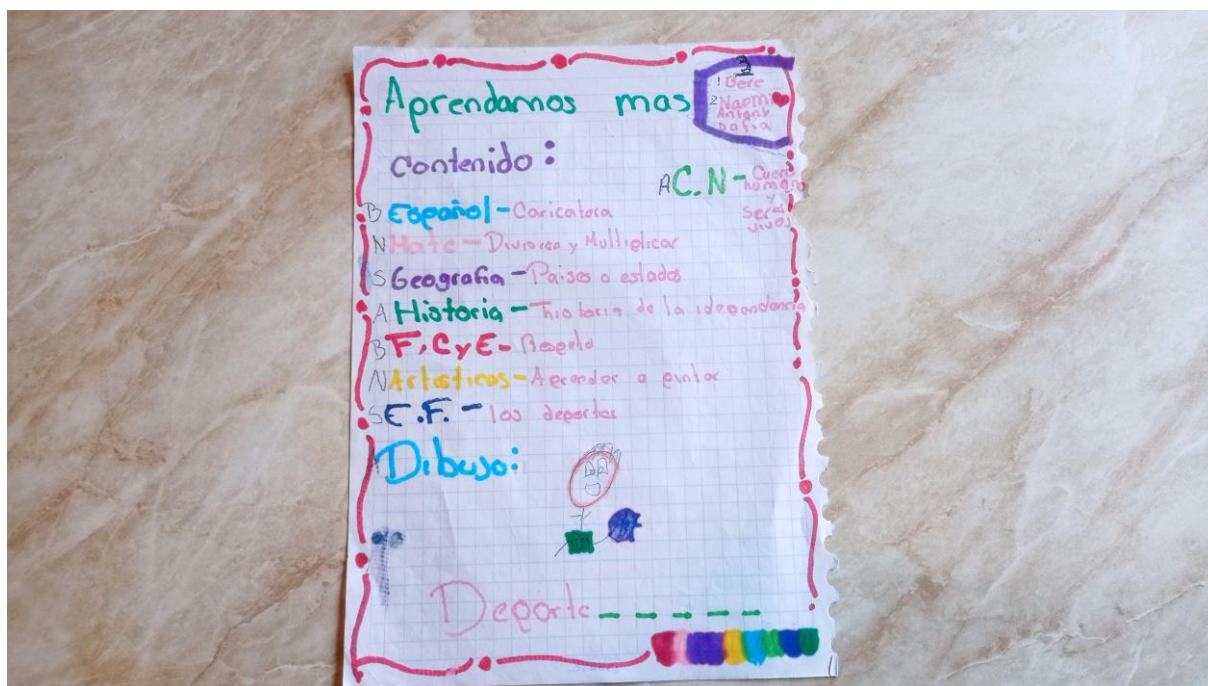 Aprendamos mas
3
1 Bere
2 Naomi
Antony
Sofia
Contenido:
A C.N - Cuerpo
homano
y
Seres
vivos
B Español - Caricatora
N Mate - Divisiones y Multiplicar
S Geografia - Paises o estados
A Historia - historia de la idependencia
B F, C y E - Respeto
N Artisticas - Aprender a pintar
S E.F. - los deportes
Dibujo:
Deporte _ _ _ _ _